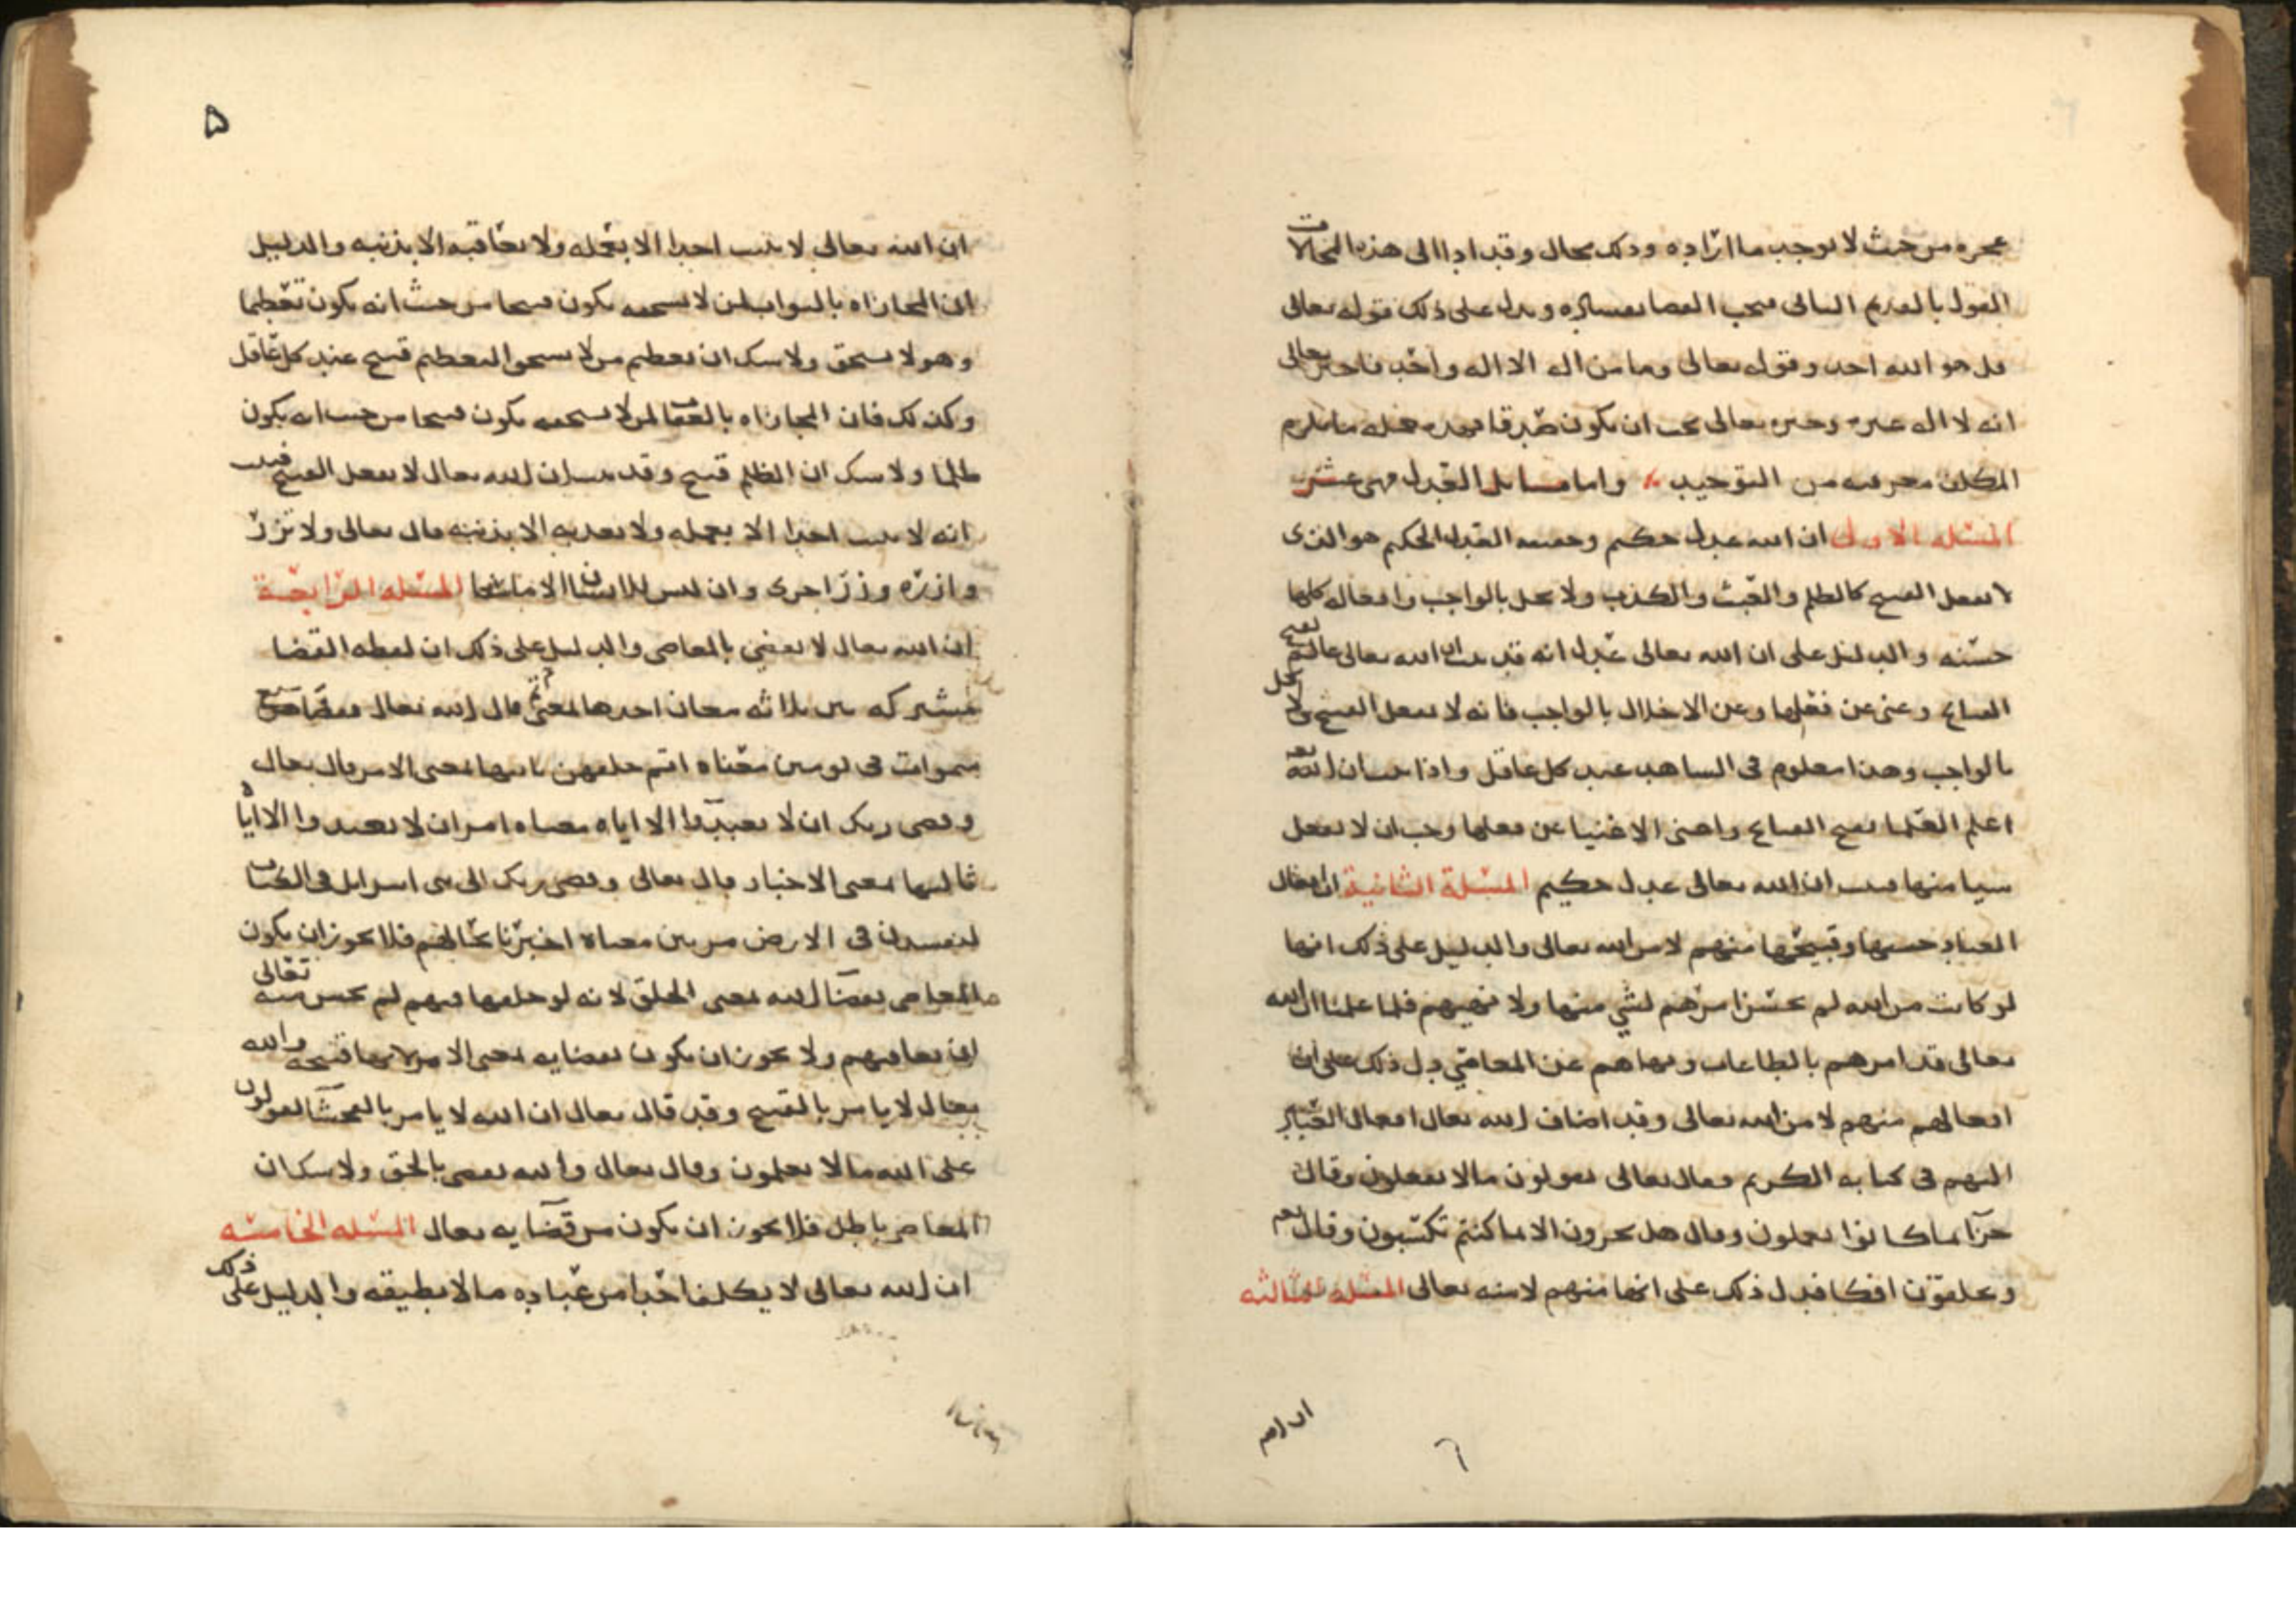 عجزه من حيث لا يوجب ما اراده وذلك محال وقد ادا الى هذه المحالات
القول بالقديم الثاني فيجب القضا بفساده ويدل على ذلك قوله تعالى
قل هو الله احد وقوله تعالى وما من اله الا اله واحد فاخبر تعالى
انه لا اله غيره وخبره تعالى يجب ان يكون صدقا فهذه جملة ما يلزم
المكلف معرفته من التوحيد واما مسايل العدل فهي عشر
المسئلة الاولى ان الله عدل حكيم وحقيقة العدل الحكيم هو الذى
لا يفعل القبيح كالظلم والعبث والكذب ولا يخل بالواجب وافعاله كلها
حسنه والدليل على ان الله تعالى عدل انه قد ثبت ان الله تعالى عالم بقبح
القبايح وغني عن فعلها وعن الاخلال بالواجب فانه لا يفعل القبيح ولا يخل
بالواجب وهذا معلوم في الشاهد عند كل عاقل واذا ثبت ان الله تعه
اعلم العلما بقبح القبايح واغنى الاغنيا عن فعلها وجب ان لا يفعل
شيا منها فثبت ان الله تعالى عدل حكيم المسئلة الثانية ان افعال
العباد حسنها وقبيحها منهم لا من الله تعالى والدليل على ذلك انها
لو كانت من الله لم يحسن امرهم لشي منها ولا نهيهم فلما علمنا ان الله
تعالى قد امرهم بالطاعات ونهاهم عن المعاصي دل ذلك على ان
افعالهم منهم لا من الله تعالى وقد اضاف الله تعالى افعال العباد
اليهم في كتابه الكريم فقال تعالى يقولون مالا يفعلون وقال
جزآ بما كانوا يعملون وقال هل تجزون الا ما كنتم تكسبون وقال تعم
وتخلقون افكا فدل ذلك على انها منهم لا منه تعالى المسئلة الثالثه
ان الله
٦
۵
ان الله تعالى لا يثيب احدا الا بعمله ولا يعاقبه الا بذنبه والدليل
ان المجازاه بالثواب لمن لا يستحقه يكون قبيحا من حيث انه يكون تعظيما
وهو لا يستحق ولا شك ان تعظيم من لا يستحق التعظيم قبيح عند كل عاقل
وكذلك فان المجازاه بالعقاب لمن لا يستحقه يكون قبيحا من حيث انه يكون
ظلما ولا شك ان الظلم قبيح وقد ثبت ان الله تعالى لا يفعل القبيح فثبت
انه لا يثيب احدا الا بعمله ولا يعذبه الا بذنبه قال تعالى ولا تزر
وازره وزر اخرى وان ليس للانسان الا ما سعا المسئله الرابعة
ان الله تعالى لا يقضي بالمعاصي والدليل على ذلك ان لفظه القضا
مشتركه بين ثلاثه معان احدها بمعنى قال الله تعالى فقضاهن سبع
سموات في يومين معناه اتم خلقهن ثانيها بمعنى الامر قال تعالى
وقضى ربك ان لا تعبدوا الا اياه معناه امر ان لا تعبدوا الا اياه
ثالثها بمعنى الاخبار قال تعالى وقضى ربك الى بني اسرايل في الكتاب
لتفسدن في الارض مرتين معناه اخبرنا بحالهم فلا يجوز ان يكون
المعاصي بقضا الله بمعنى الخلق لانه لو خلقها فيهم لم يحسن منه تعالى
ان يعاقبهم ولا يجوز ان يكون بقضايه بمعنى الامر لانها قبيحه والله
تعالى لا يامر بالقبيح وقد قال تعالى ان الله لا يامر بالفحشآ اتقولون
على الله مالا تعلمون وقال تعالى والله يقضي بالحق ولا شك ان
المعاصي باطل فلا يجوز ان يكون من قضآيه تعالى المسئله الخامسه
ان الله تعالى لا يكلف احدا من عباده مالا يطيقه والدليل على ذلك